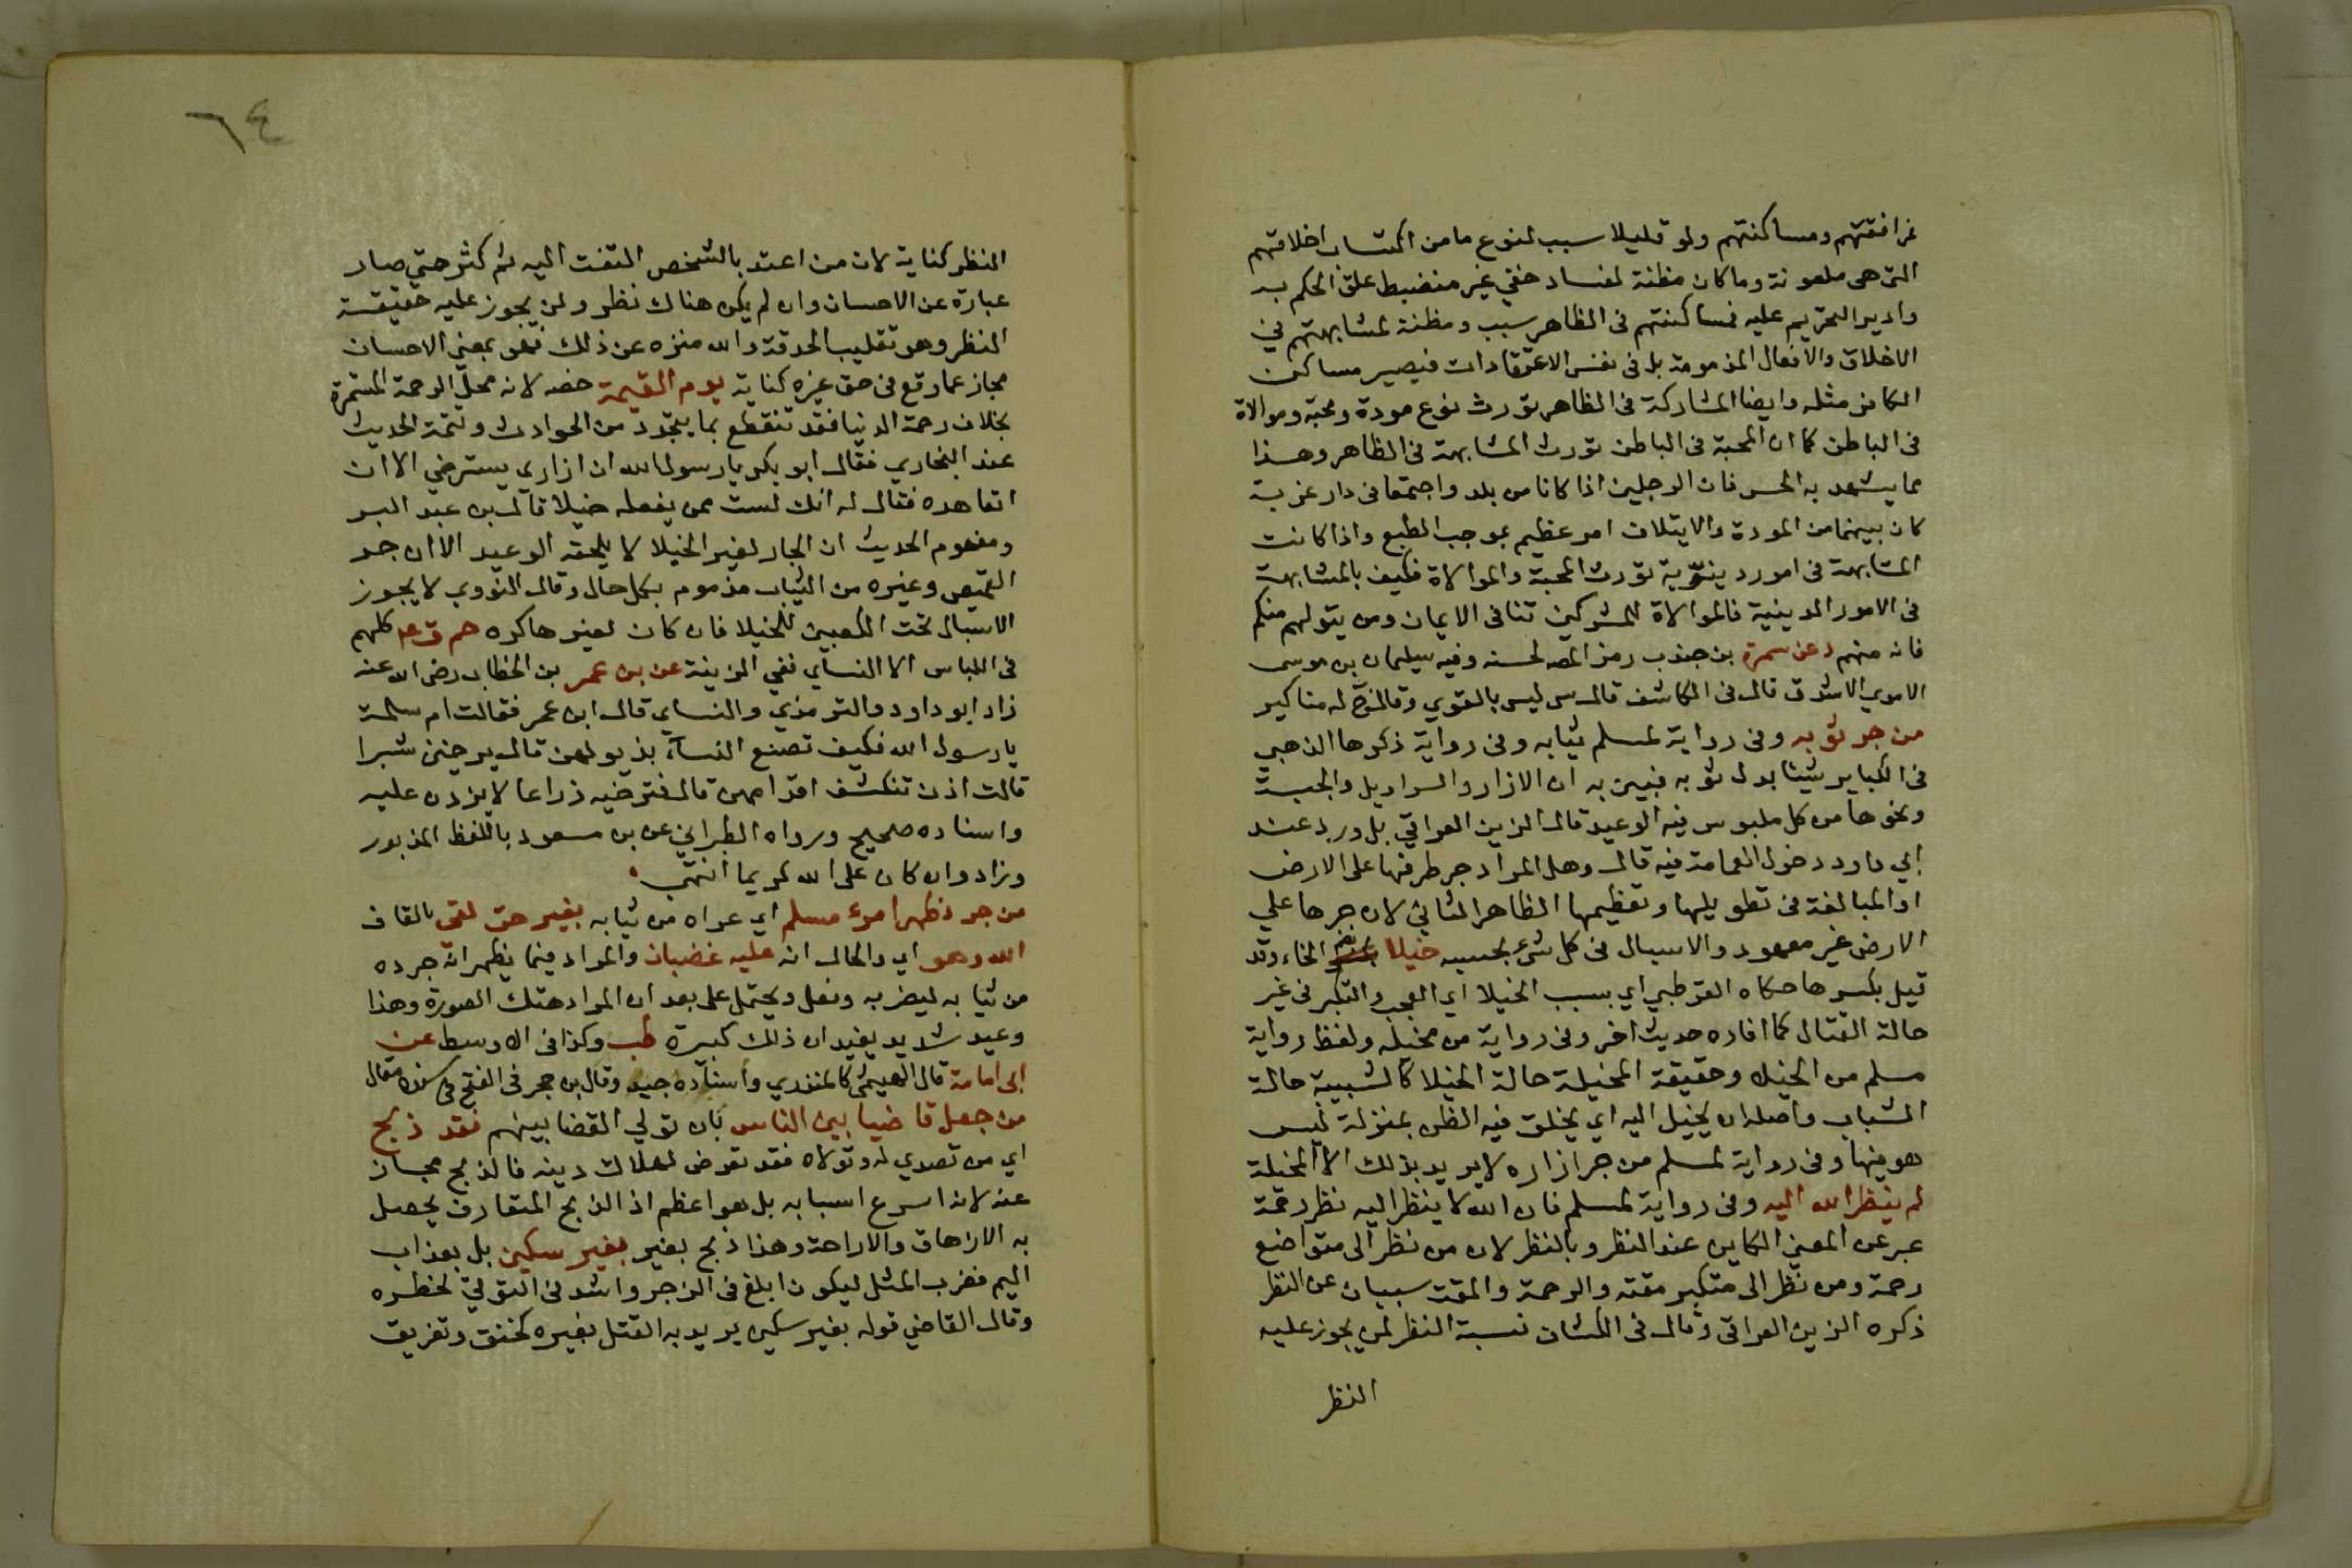 فمرافقتهم ومساكنتهم ولو قليلا سبب لنوع ما من اكتساب اخلاقهم
التى هى ملعونة وما كان مظنة لفساد خفي غير منضبط علق الحكم به
وادير التحريم عليه فمساكنتهم فى الظاهر سبب ومظنة لمشابهتهم في
الاخلاق والافعال المذمومة بل فى نفس الاعتقادات فيصير مساكن
الكافر مثله وايضا المشاركة فى الظاهر تورث نوع مودة ومحبة وموالاة
فى الباطن كما ان المحبة فى الباطن تورث المشابهة فى الظاهر وهذا
مما يشهد به الحس فان الرجلين اذا كانا من بلد واجتمعا فى دار غربة
كان بينهما من المودة والايتلاف امر عظيم بموجب الطبع واذا كانت
المشابهة فى امور دينوية تورث المحبة والموالاة فكيف بالمشابهة
فى الامور الدينية فالموالاة للمشركين تنافى الايمان ومن يتولهم منكم
فانه منهم د عن سمرة بن جندب رمز المصـ لحسنه وفيه سليمان بن موسى
الاموي الاشدق قال فى الكاشف قال س ليس بالقوي وقال خ له مناكير
من جر ثوبه وفى رواية لمسلم ثيابه وفى رواية ذكرها الذهبي
فى الكباير شيئا بدل ثوبه فبين به ان الازار والسراويل والجبة
ونحوها من كل ملبوس فيه الوعيد قال الزين العراقي بل ورد عند
ابي داود دخول العمامة فيه قال وهل المراد جر طرفها على الارض
او المبالغة فى تطويلها وتعظيمها الظاهر الثاني لان جرها علي
الارض غير معهود والاسبال فى كل شىء بحسبه خيلا بضم الخاء وقد
قيل بكسرها حكاه القرطبي اي بسبب الخيلا اي العجب والتكبر فى غير
حالة القتال كما افاده حديث اخر وفى رواية من مخيله ولفظ رواية
مسلم من الخيلا وحقيقة المخيلة حالة الخيلا كالشبيبة حالة
الشباب واصله ان يخيل اليه اي يخلق فيه الظن بمنزلة ليس
هو فيها وفى رواية لمسلم من جر ازاره لا يريد بذلك الا المخيلة
لم ينظر الله اليه وفى رواية لمسلم فان الله لا ينظر اليه نظر رحمة
عبر عن المعني الكاين عند النظر وبالنظر لان من نظر الى متواضع
رحمه ومن نظر الى متكبر مقته والرحمة والمقت سببان عن النظر
ذكره الزين العراقى وقال فى الكشاف نسبة النظر لمن يجوز عليه
النظر
٦٤
النظر كناية لان من اعتد بالشخص التفت اليه ثم كثر حتي صار
عبارة عن الاحسان وان لم يكن هناك نظر ولمن يجوز عليه حقيقة
النظر وهو تقليب الحدقة والله منزه عن ذلك فهو بمعني الاحسان
مجاز عما وقع فى حق غيره كناية يوم القيمة خصه لانه محل الرحمة المستمرة
بخلاف رحمة الدنيا فقد تنقطع بما يتجدد من الحوادث وتتمة الحديث
عند البخاري فقال ابو بكر يا رسول الله ان ازاري يسترخي الا ان
اتعاهده فقال له انك لست ممن يفعله خيلا قال بن عبد البر
ومفهوم الحديث ان الجار لغير الخيلا لا يلحقه الوعيد الا ان جر
القميص وغيره من الثياب مذموم بكل حال وقال النووي لا يجوز
الاسبال تحت الكعبين للخيلا فان كان لغيرها كره حم ق ٤ كلهم
فى اللباس الا النساي ففي الزينة عن بن عمر بن الخطاب رضى الله عنه
زاد ابو داود والترمذي والنساي قال ابن عمر فقالت ام سلمة
يا رسول الله فكيف تصنع النسآء بذيولهن قال يرخين شبرا
قالت اذن تنكشف اقدامهن قال فترخيه ذراعا لا يزدن عليه
واسناده صحيح ورواه الطبراني عن بن مسعود باللفظ المزبور
وزاد وان كان على الله كريما انتهى
من جرد ظهر امرء مسلم اي عراه من ثيابه بغير حق لقى بالقاف
الله وهو اي والحال انه عليه غضبان والمراد فيما يظهر انه جرده
من ثيابه ليضربه وفعل ويحتمل على بعد ان المراد هتك العورة وهذا
وعيد شديد يفيد ان ذلك كبيرة طب وكذا فى الاوسط عن
ابى امامة قال الهيثمي كالمنذري واسناده جيد وقال بن حجر فى الفتح فى سنده مقال
من جعل قاضيا بين الناس بان تولي القضا بينهم فقد ذبح
اي من تصدي له وتولاه فقد تعرض لهلاك دينه فالذبح مجاز
عنه لانه اسرع اسبابه بل هو اعظم اذ الذبح المتعارف يحصل
به الازهاق والاراحة وهذا ذبح بغير بغير سكين بل بعذاب
اليم فضرب المثل ليكون ابلغ فى الزجر واشد فى التوقي لخطره
وقال القاضي قوله بغير سكين يريد به القتل بغيره كخنق وتغريق